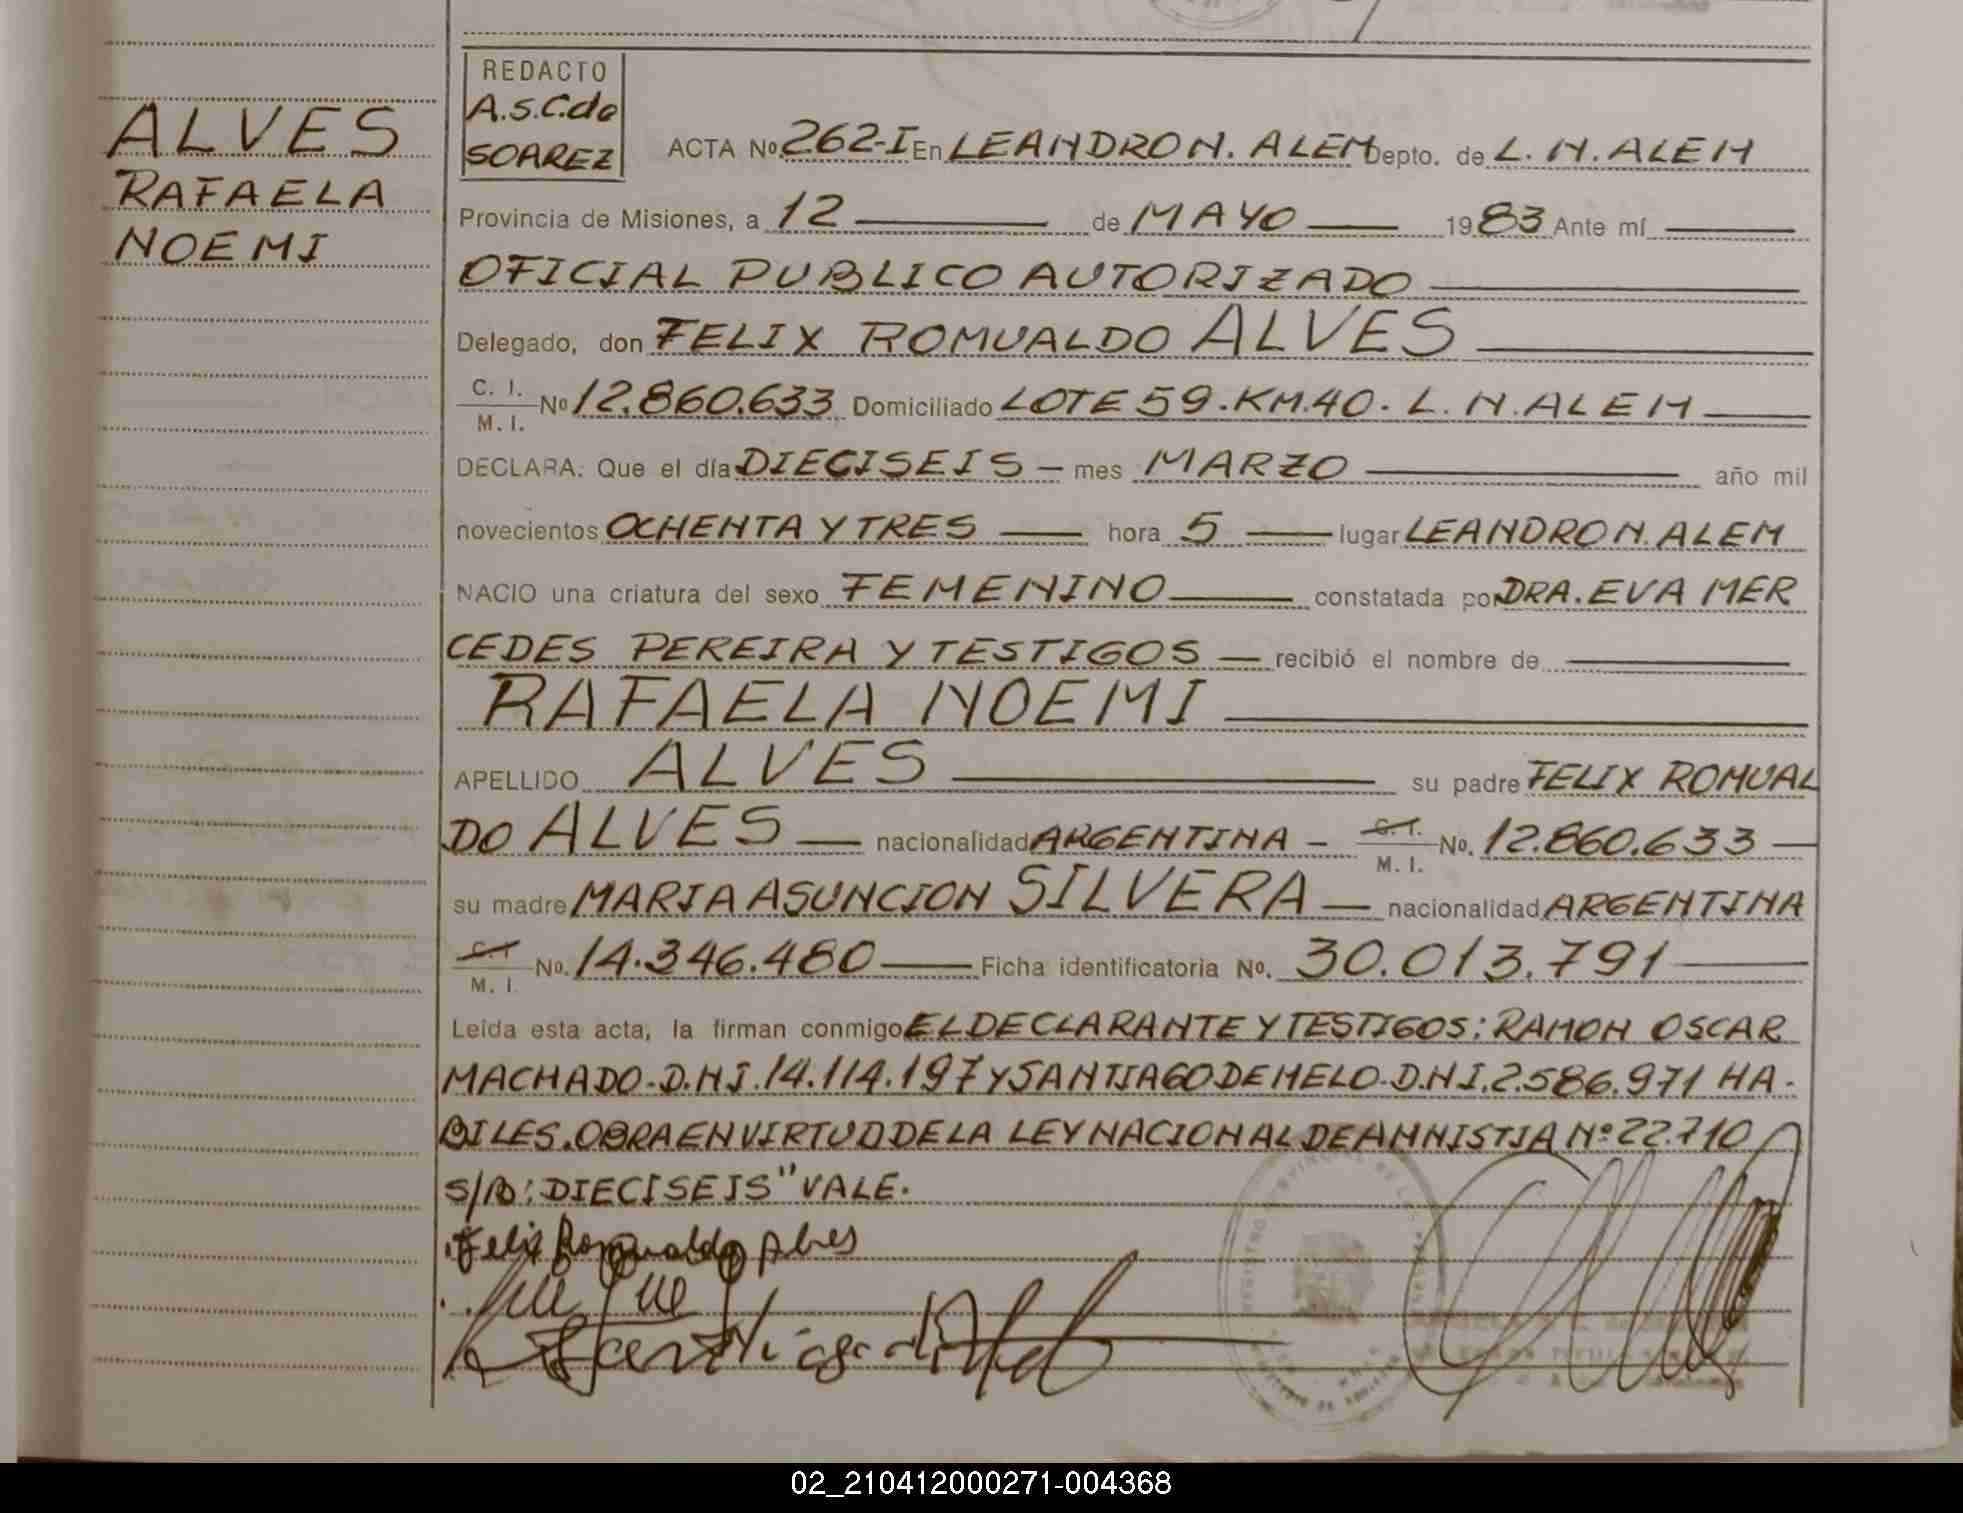 ALVES
RAFAELA
NOEMI
REDACTO
A.S.C.de
SOAREZ
ACTA No. 262-I En LEANDRO N. ALEM Depto. de L. N. ALEM
Provincia de Misiones, a 12 de MAYO 1983 Ante mí
OFICIAL PUBLICO AUTORIZADO
Delegado, don FELIX ROMUALDO ALVES
C. I.
M. I. No 12.860.633 Domiciliado LOTE 59.KM.40. L. N. ALEM
DECLARA: Que el día DIECISEIS mes MARZO año mil
novecientos OCHENTA Y TRES hora 5 lugar LEANDRO N. ALEM
NACIO una criatura del sexo FEMENINO constatada por DRA. EVA MER
CEDES PEREIRA Y TESTIGOS recibió el nombre de
RAFAELA NOEMI
APELLIDO ALVES su padre FELIX ROMUAL
DO ALVES nacionalidad ARGENTINA C. I.
M. I. No. 12.860.633
su madre MARIA ASUNCION SILVERA nacionalidad ARGENTINA
C. I.
M. I. No. 14.346.480 Ficha identificatoria No. 30.013.791
Leída esta acta, la firman conmigo EL DECLARANTE Y TESTIGOS: RAMON OSCAR
MACHADO.D.N.I.14.114.197 Y SANTIAGO DE MELO.D.N.I.2.586.971 HA.
BILES.OBRA EN VIRTUD DE LA LEY NACIONAL DE AMNISTIA Nº 22.710
S/B: DIECISEIS" VALE.
Felix Romualdo Alves
02_210412000271-004368